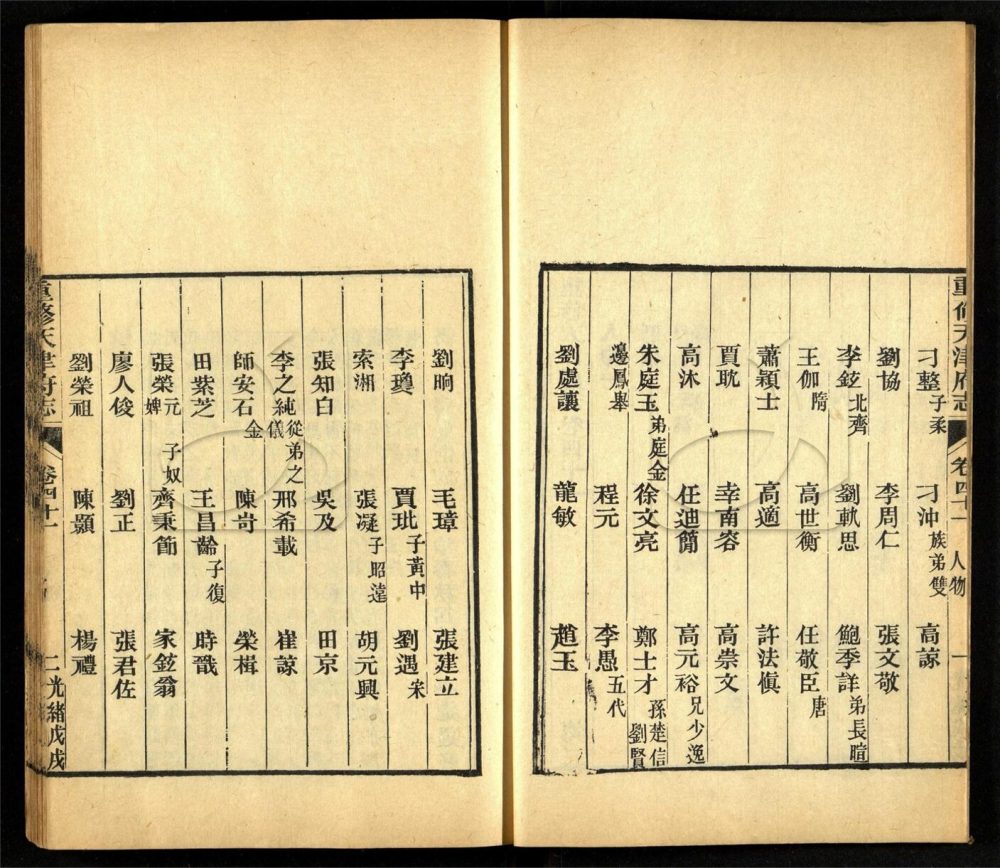 重修天津府志 卷四十一 人物 一
刁整子柔 刁沖族弟雙 高諒
劉協 李周仁 張文敬
李鉉北齊 劉軌思 鮑季詳弟長暄
王伽隋 高世衡 任敬臣唐
蕭穎士 高適 許法愼
賈耽 幸南容 高崇文
高沐 任迪簡 高元裕兄少逸
朱庭玉弟庭金 徐文亮 鄭士才孫楚信劉賢
邊鳳舉 程元 李愚五代
劉處讓 龍敏 趙玉
劉晌 毛璋 張建立
李瓊 賈玭子黃中 劉遇宋
索湘 張凝子昭遠 胡元興
張知白 吳及 田京
李之純從弟之儀 邢希載 崔諒
師安石金 陳岢 榮楫
田紫芝 王昌齡子復 時戩
張榮元 子奴婢 齊秉節 家鉉翁
廖人俊 劉正 張君佐
劉榮祖 陳顥 楊禮
重修天津府志 卷四十一 二 光緒戊戌